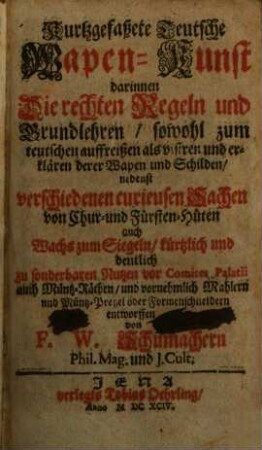 Kurtzgefaßete Teutsche
Wapen-Kunst
darinnen
Die rechten Regeln und
Grundlehren / sowohl zum
teutschen auffreißen als visiren und er-
klären derer Wapen und Schilden /
nebenst
verschiedenen curieusen Sachen
von Chur-und Fürsten-Hüten
auch
Wachs zum Siegeln / kürtzlich und
deutlich
zu sonderbaren Nutzen vor Comites Palatii
auch Müntz-Räthen / und vornehmlich Mahlern
und Müntz-Prezel oder Formenschneidern
entworffen
von
F. W. Schumachern
Phil. Mag. und J. Cult.
JENA
verlegts Tobias Oehrling /
Anno M DC XCIV.